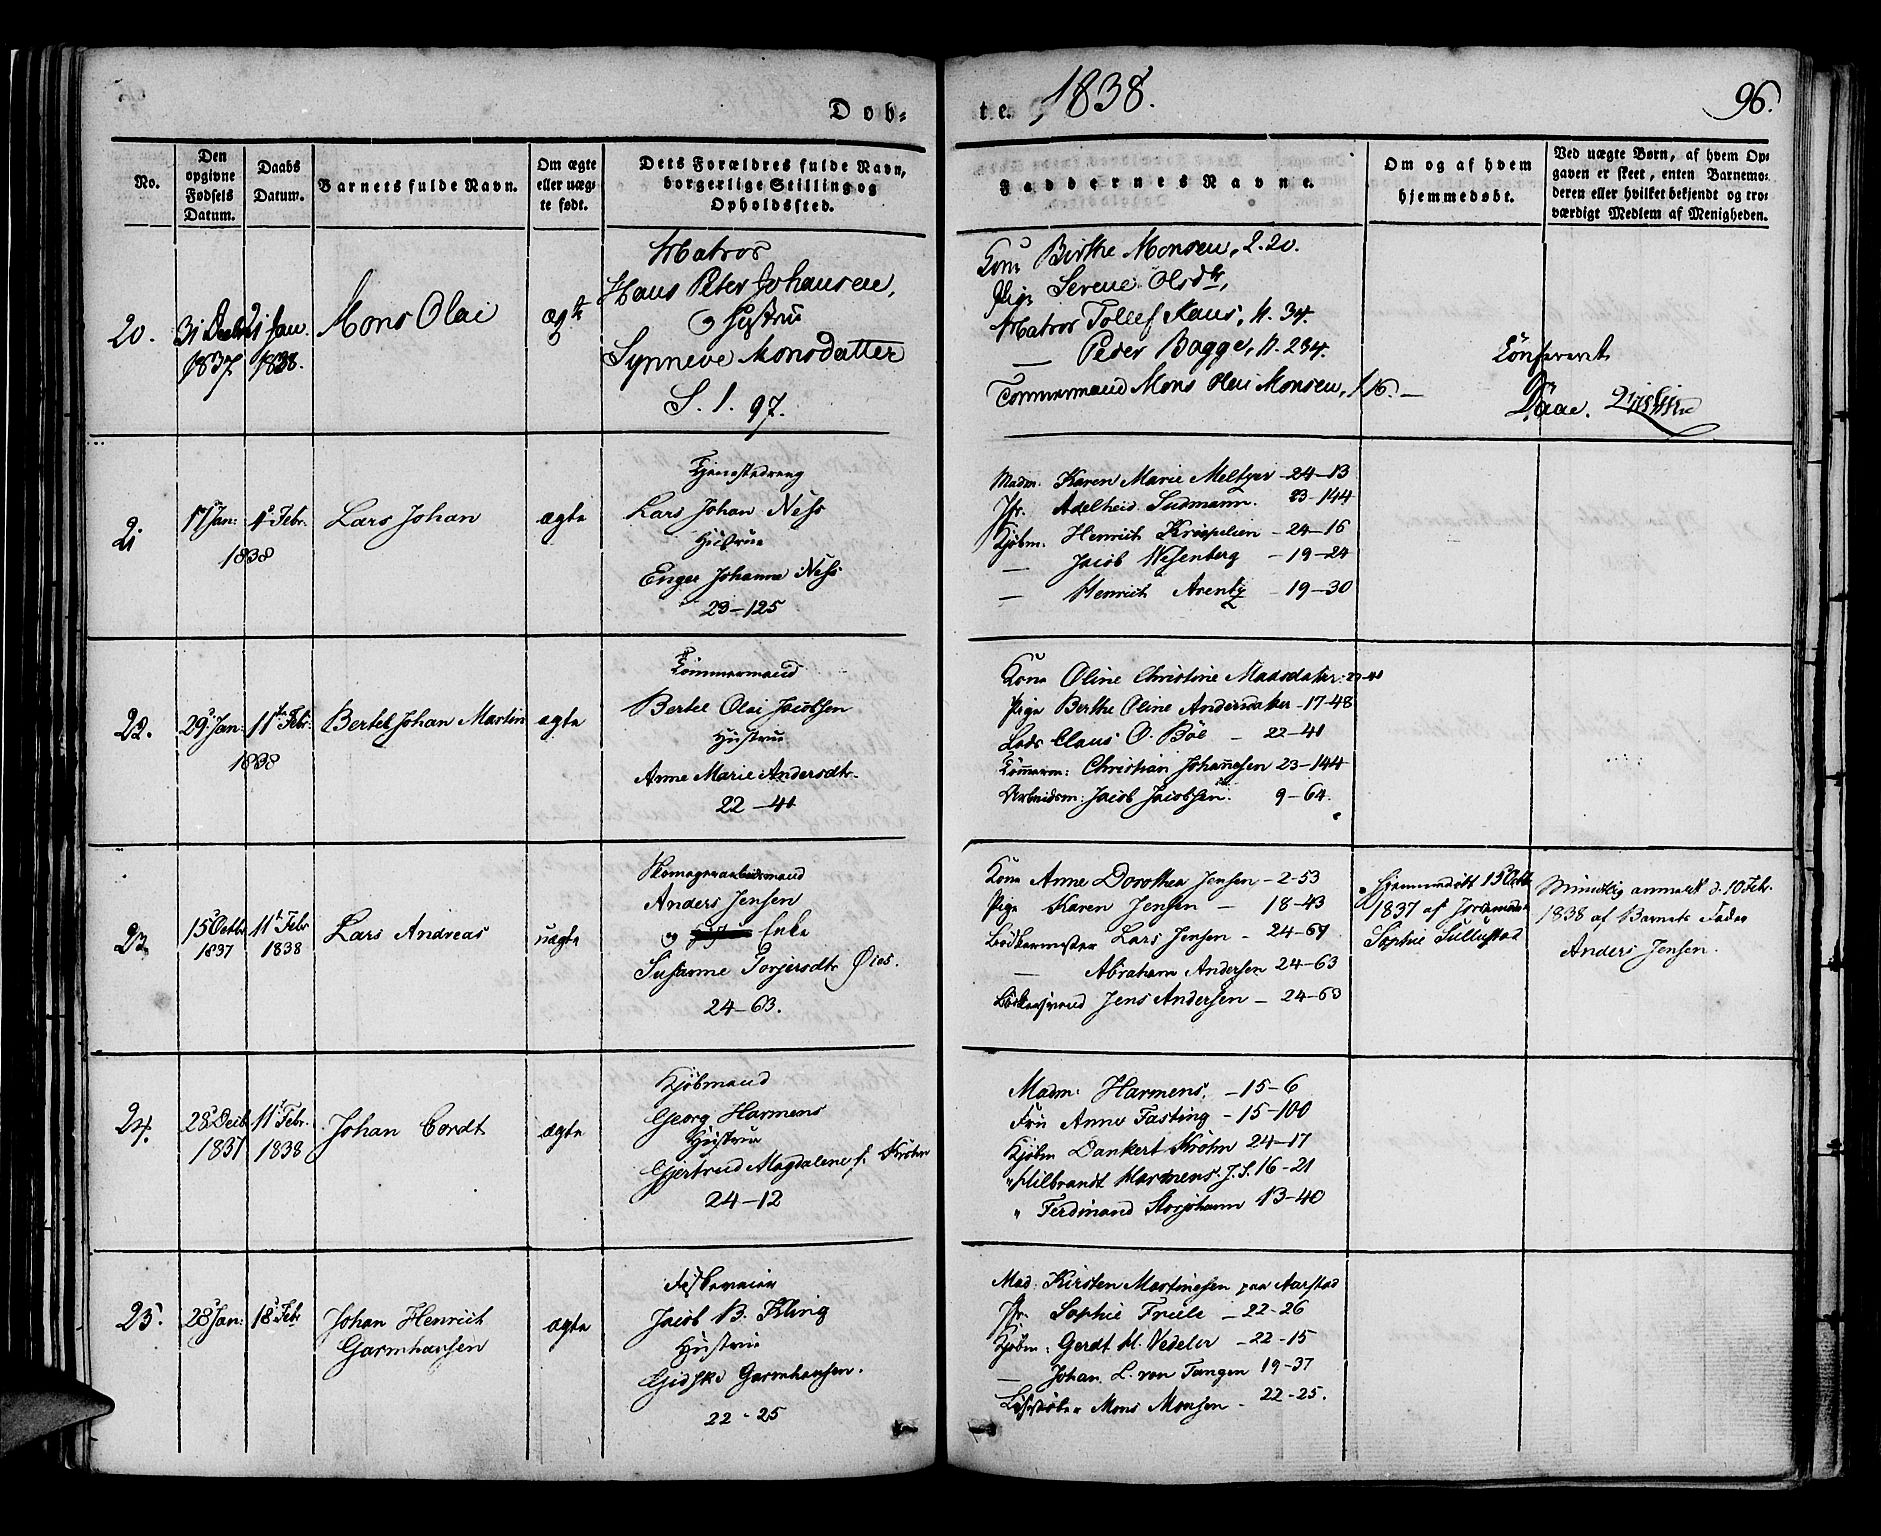 Døb=
te. 1838.
96.
No.
Den opgivne Fødsels Datum.
Daabs Datum.
Barnets fulde Navn.
Om ægte eller uæg- te født.
Dets Forældres fulde Navn, borgerlige Stilling og Opholdssted.
Faddernes Navne.
Om og af hvem hjemmedøbt.
Ved uægte Børn, af hvem Op- gaven er skeet, enten Barnemo- deren eller hvilket bekjendt og tro- værdigt Medlem af Menigheden.
20.
31 Decbr
1837.
21 Jan
1838.
Mons Olai
ægte
Matros
Hans Peter Johansen,
og Hustru
Synneve Monsdatter
S. 1. 97.
Kone Birthe Monsen, 2.20.
Pige Serene Olsdtr,
Matros Tollef Kaus, 11. 34.
— Peder Bagge, 11. 284.
Tømmermand Mons Olai Monsen, 1.16. —
Confereret
Daae.
21
17 Jan:
1 Febr.
1838
Lars Johan
ægte
Tjenestedreng
Lars Johan Ness
Hustrue
Enger Johanne Ness
23—125
Madm. Karen Marie Meltzer —24—13
Jfr. Adelheid Sudmann. 23—144
Kjøbm. Henrich Krispelien —24—16
— Jacob Wesenberg —19—24
— Henrich Arentz —19—30
22.
29 Jan:
11te Febr:
1838
Bertel Johan Martin
ægte
Tømmermand
Bertel Olai Jacobsen
Hustrue
Anne Marie Andersdtr.
22—41
Kone Oline Christine Madsdatter
Pige Berthe Oline Andersdatter —17—48
Lods Claus O. Böe — 22—41
Tømmerm: Christian Johannesen 23—144
Arbeidsm: Jacob Jacobsen. 9—64.
23.
15 Octbr
1837
11t Febr
1838
Lars Andreas
uægte
Skomagerarbeidsmand
Anders Jensen
og Enke
Susanne Torgersdtr Øies.
24—63.
Kone Anne Dorothea Jensen —2—53
Pige Karen Jensen — 18—43
Bødkermester Lars Jensen — 24—67
— Abraham Andersen 24—63
Bødkersvend Jens Andersen — 24—63
Hjemmedøbt 15 Octbr
1837 af Jordemoder
Sophie Sullustad
Mundtlig anmeldt d. 10 Febr.
1838 af Barnets Fader
Anders Jensen.
24.
28 Decb
1837
11t Febr.
1838
Johan Cordt
ægte
Kjøbmand
Georg Harmens
Hustrue
Gjertrud Magdalene f. Krohn
24—12
Madm: Harmens. —15—6
Frü Anne Fasting —15—100
Kjøbm Dankert Krohn 24—17
" Hilbrandt Harmens. J.S. 16—21
" Ferdinand Storjohann 13—40
25.
28 Jan:
18 Feb
Johan Henrich
Garmhausen
ægte
Fiskeveier
Jacob B. Kling
Hustrue
Gidske Garmhausen.
22-25
Mad: Kirsten Martinesen paa Aarstad
Jfr. Sophie Friele —22—26
Kjøbm: Gerdt M. Vedeler —22—15
— Johan. L. von Tangen 19—37
Mons Monsen — 22—25.